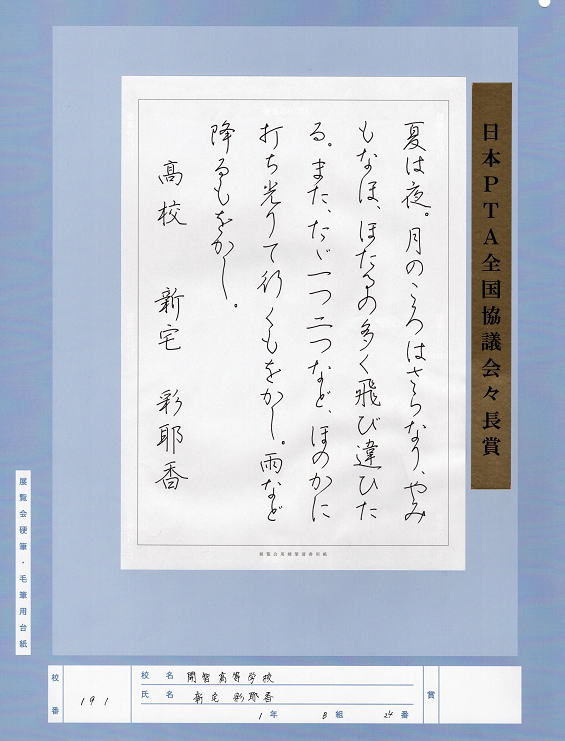 日本PTA全国協議会々長賞
夏は夜。月のころはさらなり、やみ
もなほ、ほたるの多く飛び違ひた
る。また、ただ一つ二つなど、ほのかに
打ち光りて行くもをかし。雨など
降るもをかし。
高校 新宅 彩耶香
展覧会用硬筆清書用紙
展覧会硬筆・毛筆用台紙
校番 191
校名 開智高等学校
氏名 新宅 彩耶香
1年 B組 24番
賞